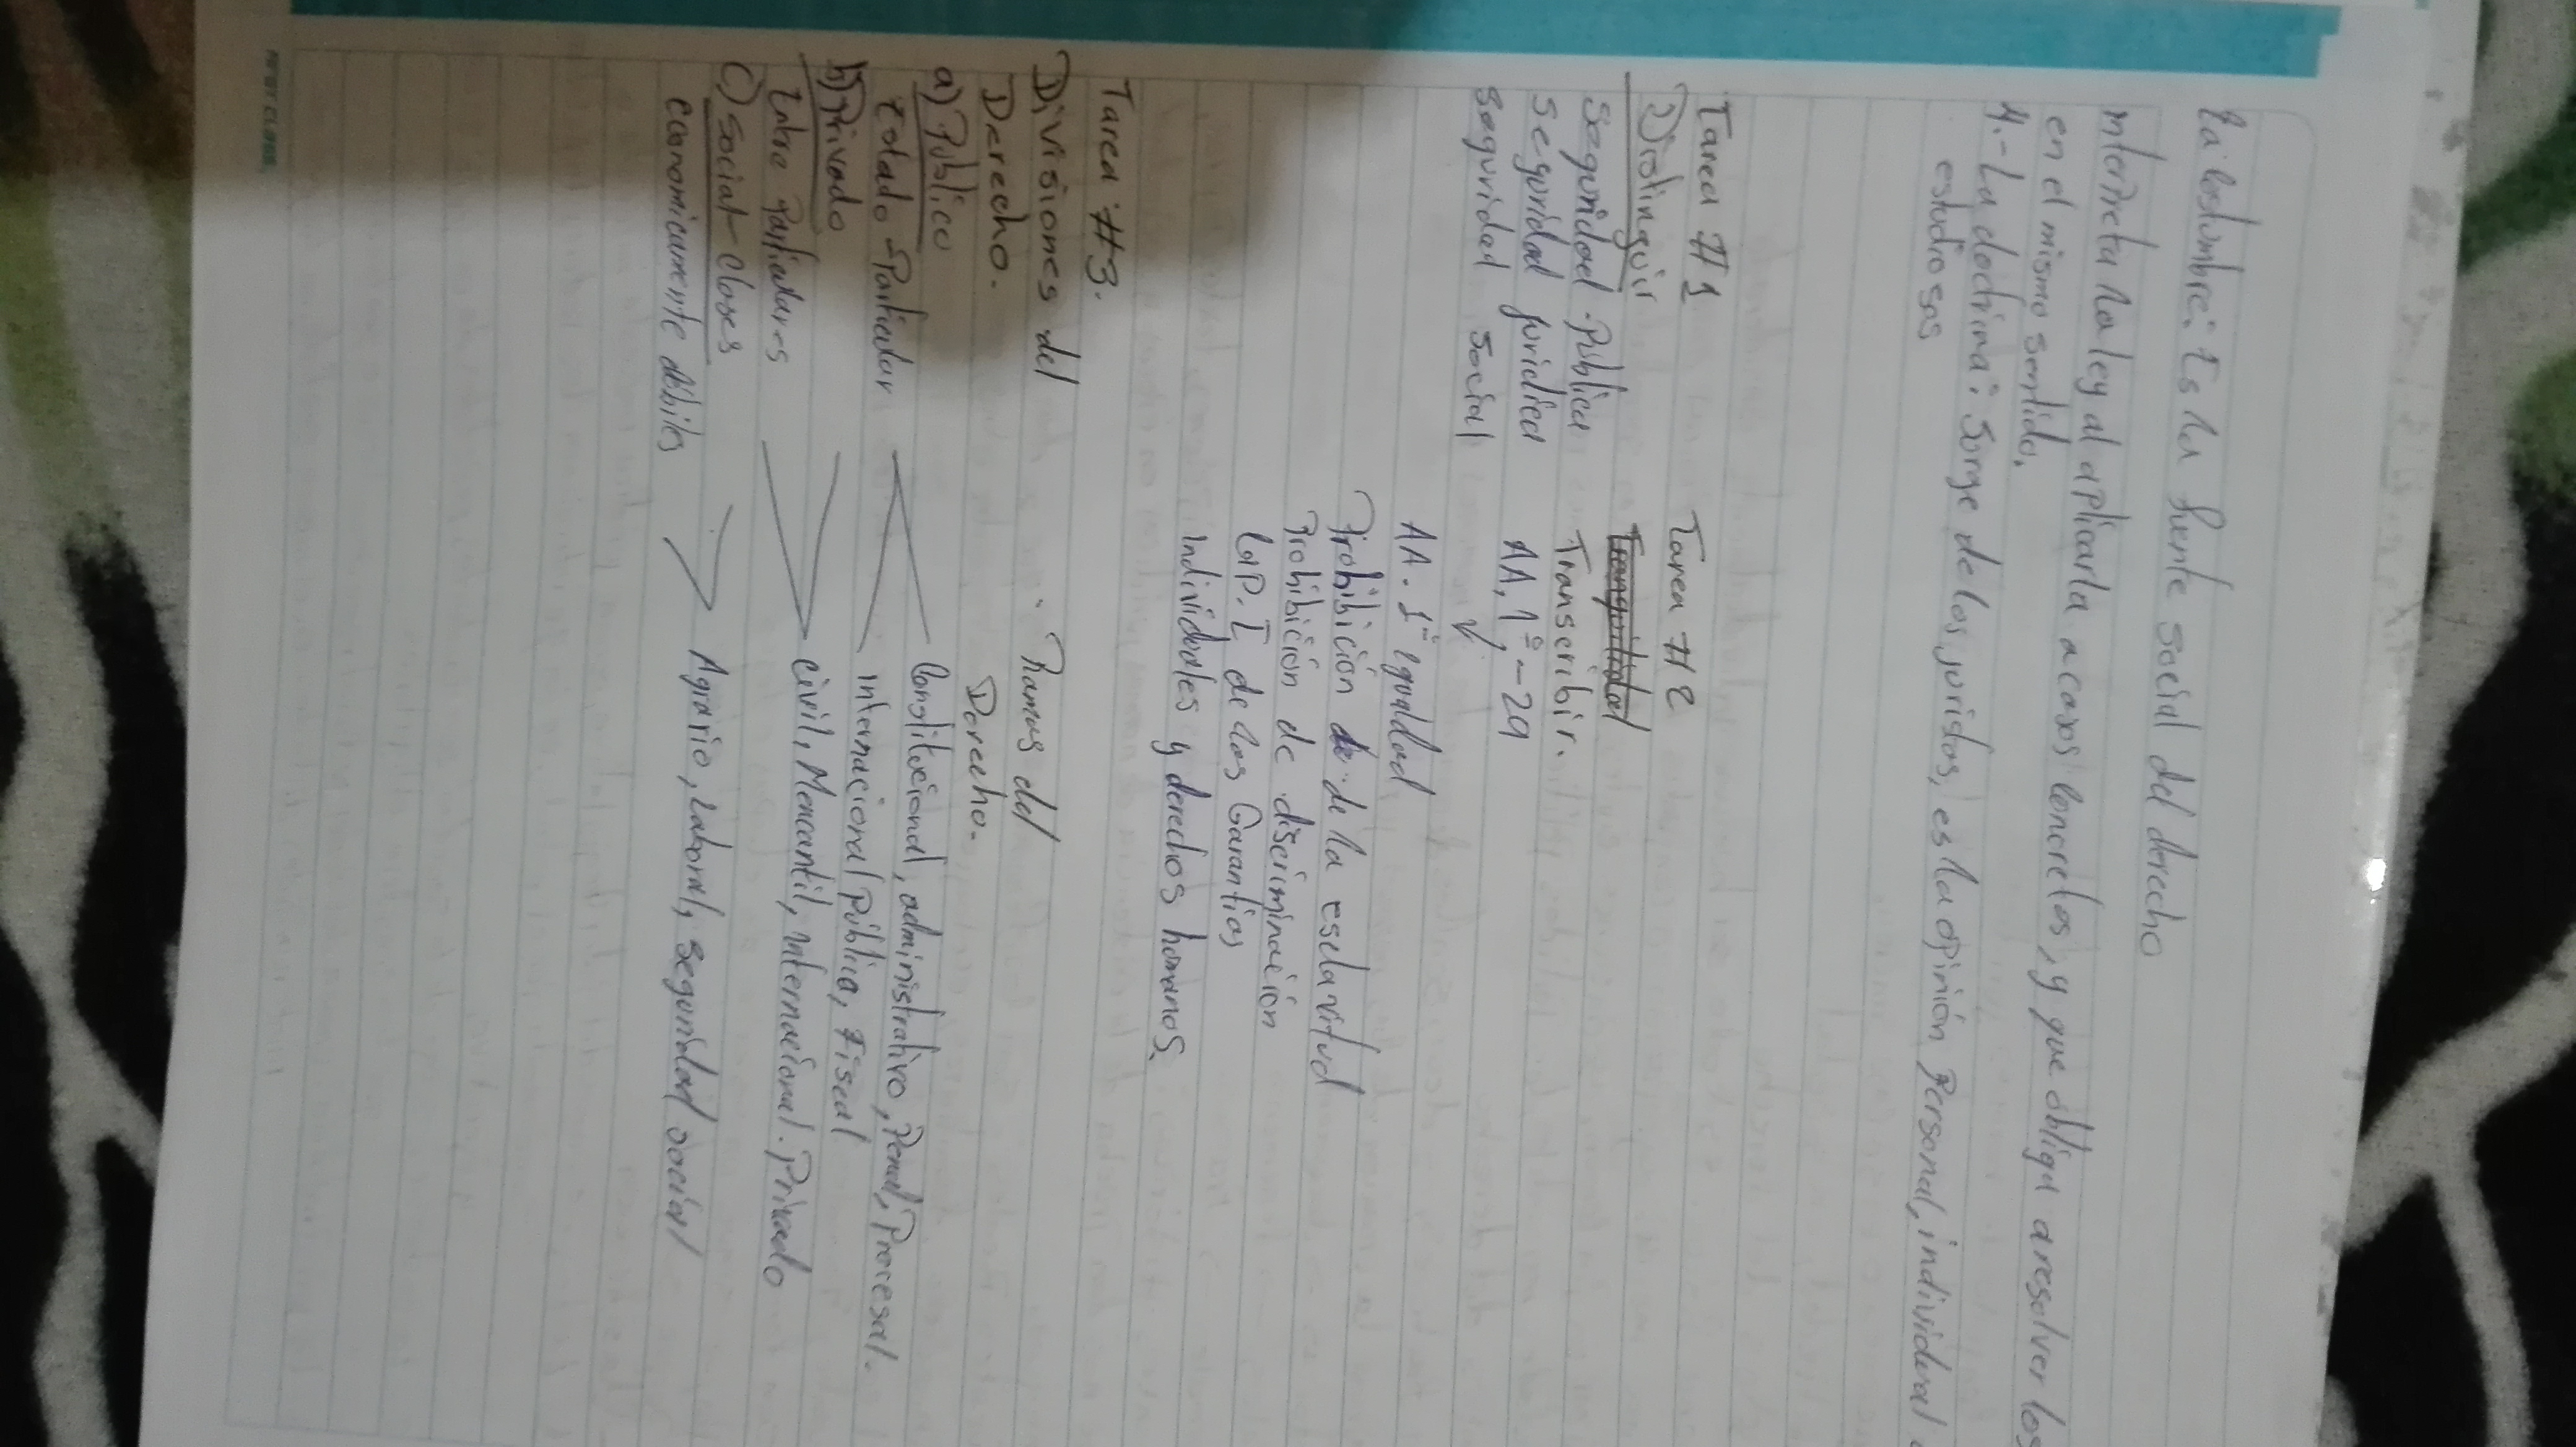 La costumbre: Es la fuente social del derecho
interpreta la ley al aplicarla a casos concretos, y que obliga a resolver los
en el mismo sentido.
4.- La doctrina: Surge de los juristas, es la opinión Personal, individual
estudiosos
Tarea #1
Distinguir
Seguridad Pública
Seguridad jurídica
Seguridad Social
Tarea #2
Transcribir.
AA, 1º - 29
AA. 1º igualdad
Prohibición de de la esclavitud
Prohibición de discriminación
CAP. I de las Garantías
individuales y derechos humanos.
Tarea #3.
Divisiones del
Derecho.
a) Público
Estado - Particular
b) Privado
Entre Particulares
c) Social - Clases
económicamente débiles
Ramas del
Derecho.
Constitucional, administrativo, Penal, Procesal.
internacional Pública, Fiscal
Civil, Mercantil, internacional. Privado
Agrario, Laboral, Seguridad social